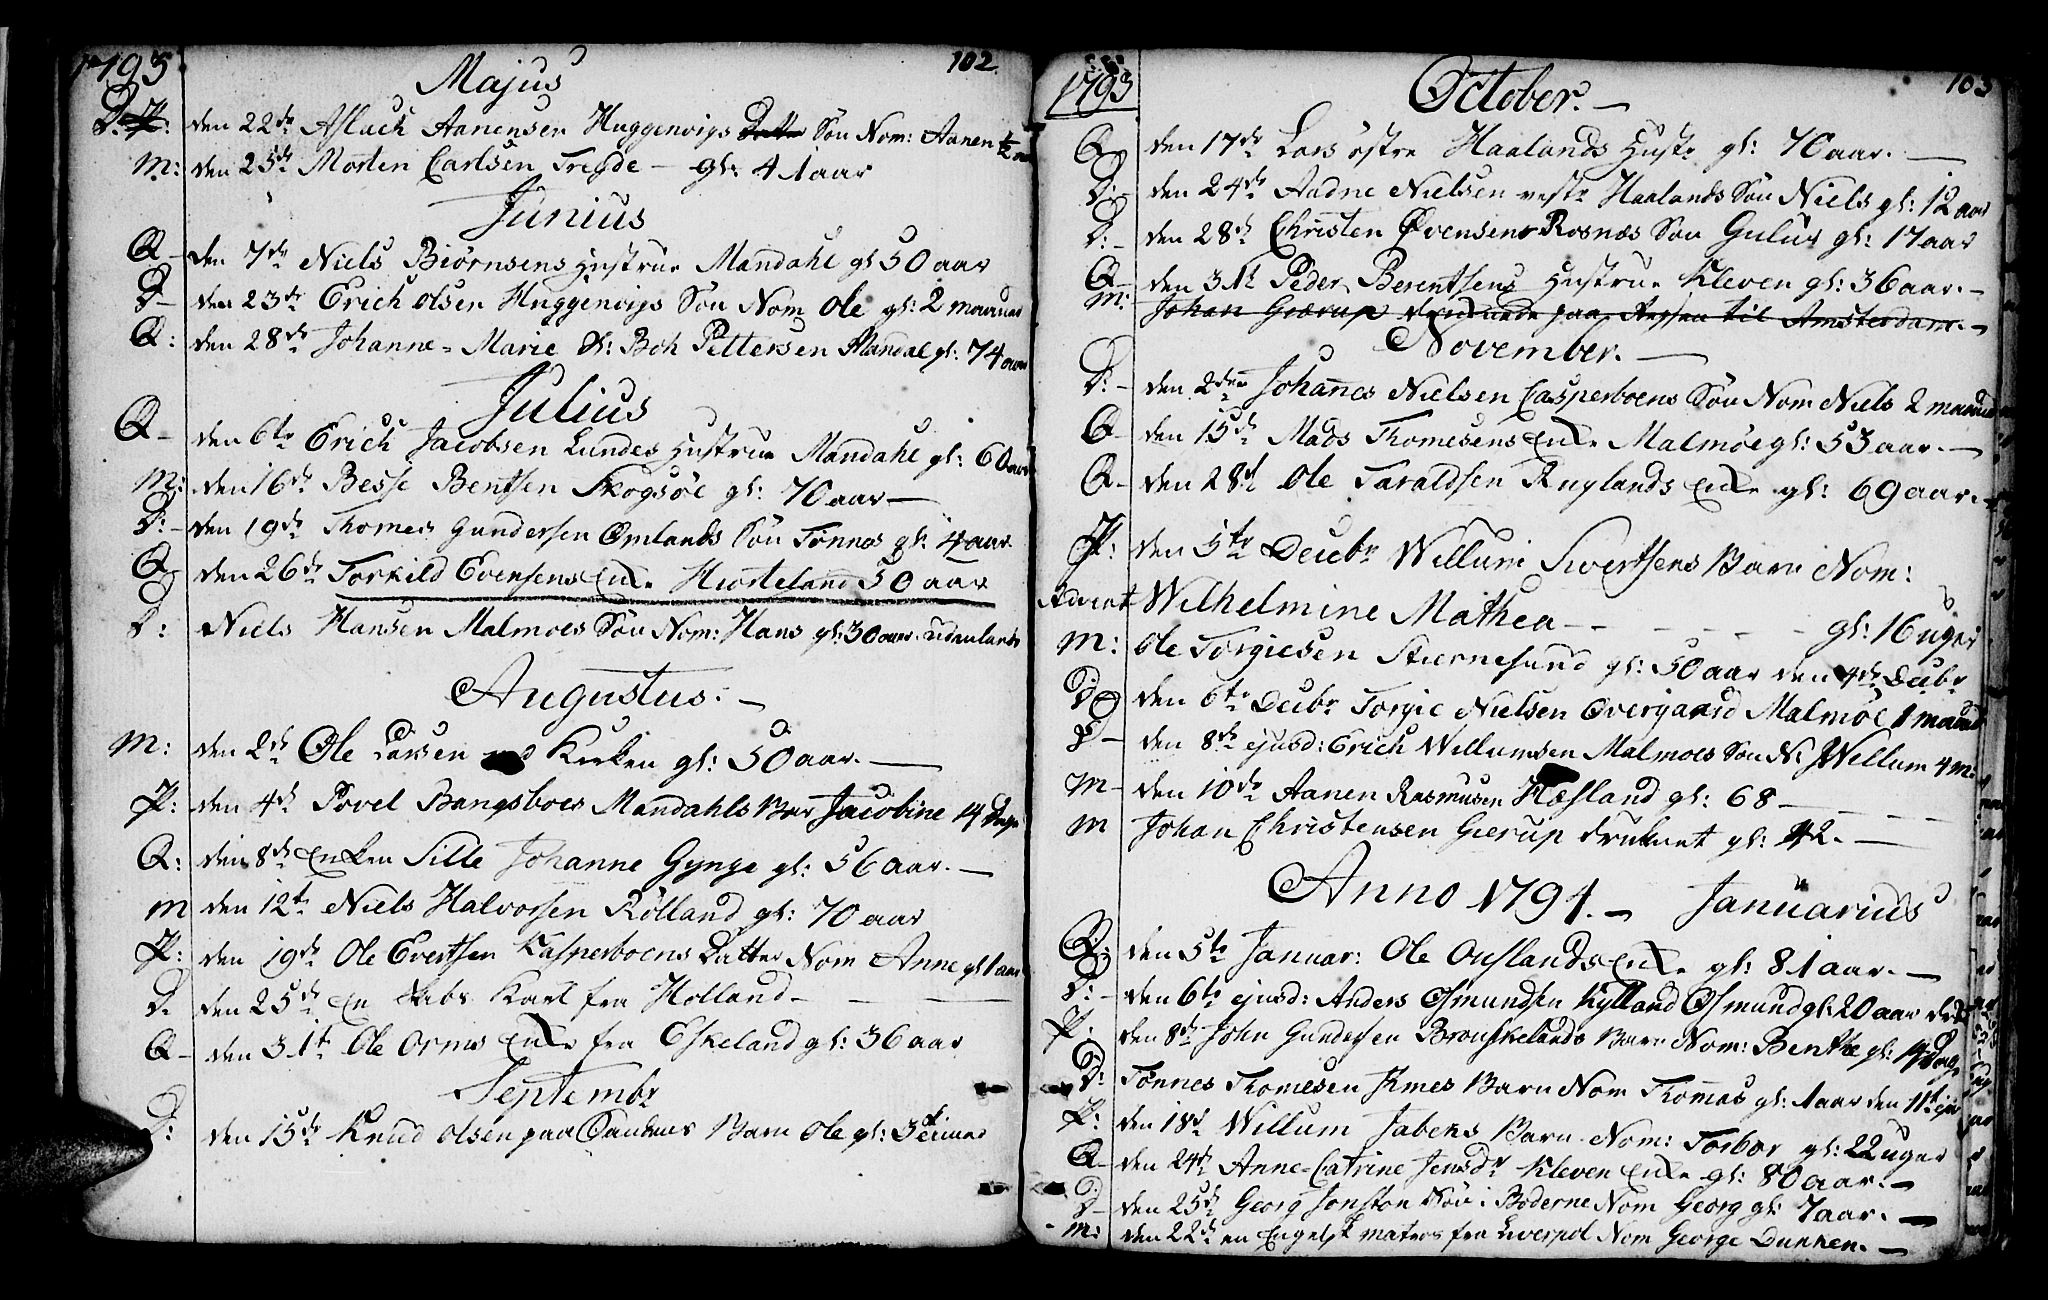 1793
102
Majus
D: den 22de Aslach Aanensen Huggenvigs Datter Søn Nom: Aanen 1/2
M: den 25de Morten Carlsen Tregde - gl: 41 aar
Junius
Q - den 7de Niels Biørnsens Hustrue Mandahl gl 50 aar
D - den 23de Erich Olsen Huggenvigs Søn Nom Ole gl: 2 maaned
Q: den 28de Johanne=Marie Sl: Boh Pettersen Mandal gl: 74 aar
Julius
Q - den 6te Erich Jacobsen Lundes Hustrue Mandahl gl: 60 aar
M: den 16de Besse Bentsen Skogsøe gl: 70 aar -
D: - den 19de Thomes Gundersen Omlands Søn Tønnes gl: 4 aar
Q den 26de Torkild Evensens Enke Hiorteland 50 aar
D: Niels Hansen Malmoes Søn Nom: Hans gl: 30 aar udenlands
Augustus. -
M: den 2de Ole Larsen ved Kirken gl: 50 aar. -
P: den 4de Povel Bangsboes Mandahls Bar Jacobine 14 Dage
Q: den 8de Enken Sille Johanne Gynge gl: 56 aar. -
M den 12te Niels Halvorsen Rølland gl: 70 aar
P: den 19de Ole Evertsen Kasperboens Datter Nom Anne gl 1 aar
D. den 25de En Karl fra Holland - - -
Q - den 31te Ole Orms Enke fra Eskeland gl: 36 aar
Septembr
D: den 15de Knud Olsen paa Barn Ole gl: 3
1793
103
October. -
Q den 17de Lars østre Haalands Hustr gl: 70 aar. -
D: - den 24de Aadne Nielsen vestr Haalands Søn Niels gl: 12 aar
D: - den 28de Christen Øvensen Rosnæs Søn Gulus gl: 17 aar
Q - den 31t Peder Berentsens Hustrue Kleven gl: 36 aar. -
M: Johan Gierup druknede paa til Amsterdam. -
November. -
D: - den 2den Johannes Nielsen Casperboens Søn Nom Niels 2 maaned
Q den 15de Mads Thomesens Enke Malmøe gl: 53 aar. -
Q - den 28d Ole Taraldsen Ruglands Enke gl: 69 aar. -
P: den 5te Decbr Willum Sivertsens Barn Nom:
Advent Wilhelmine Mathea - - - - gl: 16 uger
M: Ole Torgiesen Stiernesund gl: 50 aar den 4de Decbr
D: den 6te Decbr Torgie Nielsen Overgaard Malmøe 1 maaned
D - den 8de ejusd: Erich Willumsen Malmoes Søn N: Willum 4 M:
M - den 10de Aanen Rasmusen Hæsland gl: 68 - - -
M Johan Christensen Gierup druknet gl: 42. -
Anno 1794. - Januarius
Q: den 5te Januar: Ole Ouslands Enke gl: 81 aar. -
D: - den 6te ejusd: Anders Osmundsen Kylland Osmund gl: 20 aar
P. den 8de John Gundersen Brouskelands Barn Nom: Benthe gl: 14 Dage
D: Tønnes Thomesen Barn Nom Thomas gl: 1 aar den 11te
P: den 18d Willum Tabens Barn Nom: Torbor gl: 22 uger
Q - den 24de Anne=Catrine Jensdr Kleven Enke gl: 80 aar. -
D - den 25de Georg Jonston Søn i Boderne Nom Georg gl: 7 aar. -
M: den 22de en Engelsk matros fra Liverpol Nom George Dunken. -